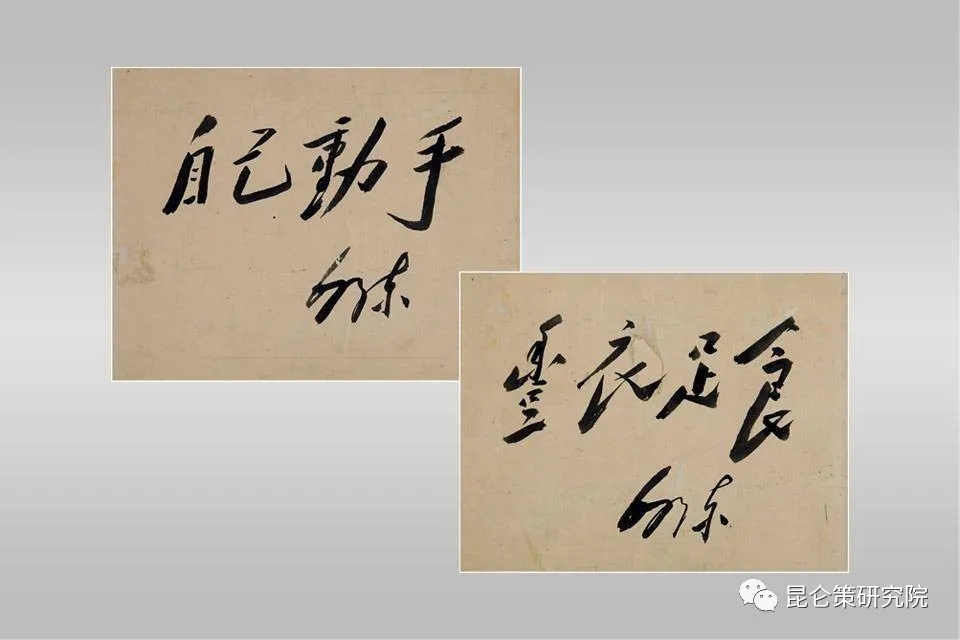 自己動手
毛泽东
豐衣足食
毛泽东
昆仑策研究院